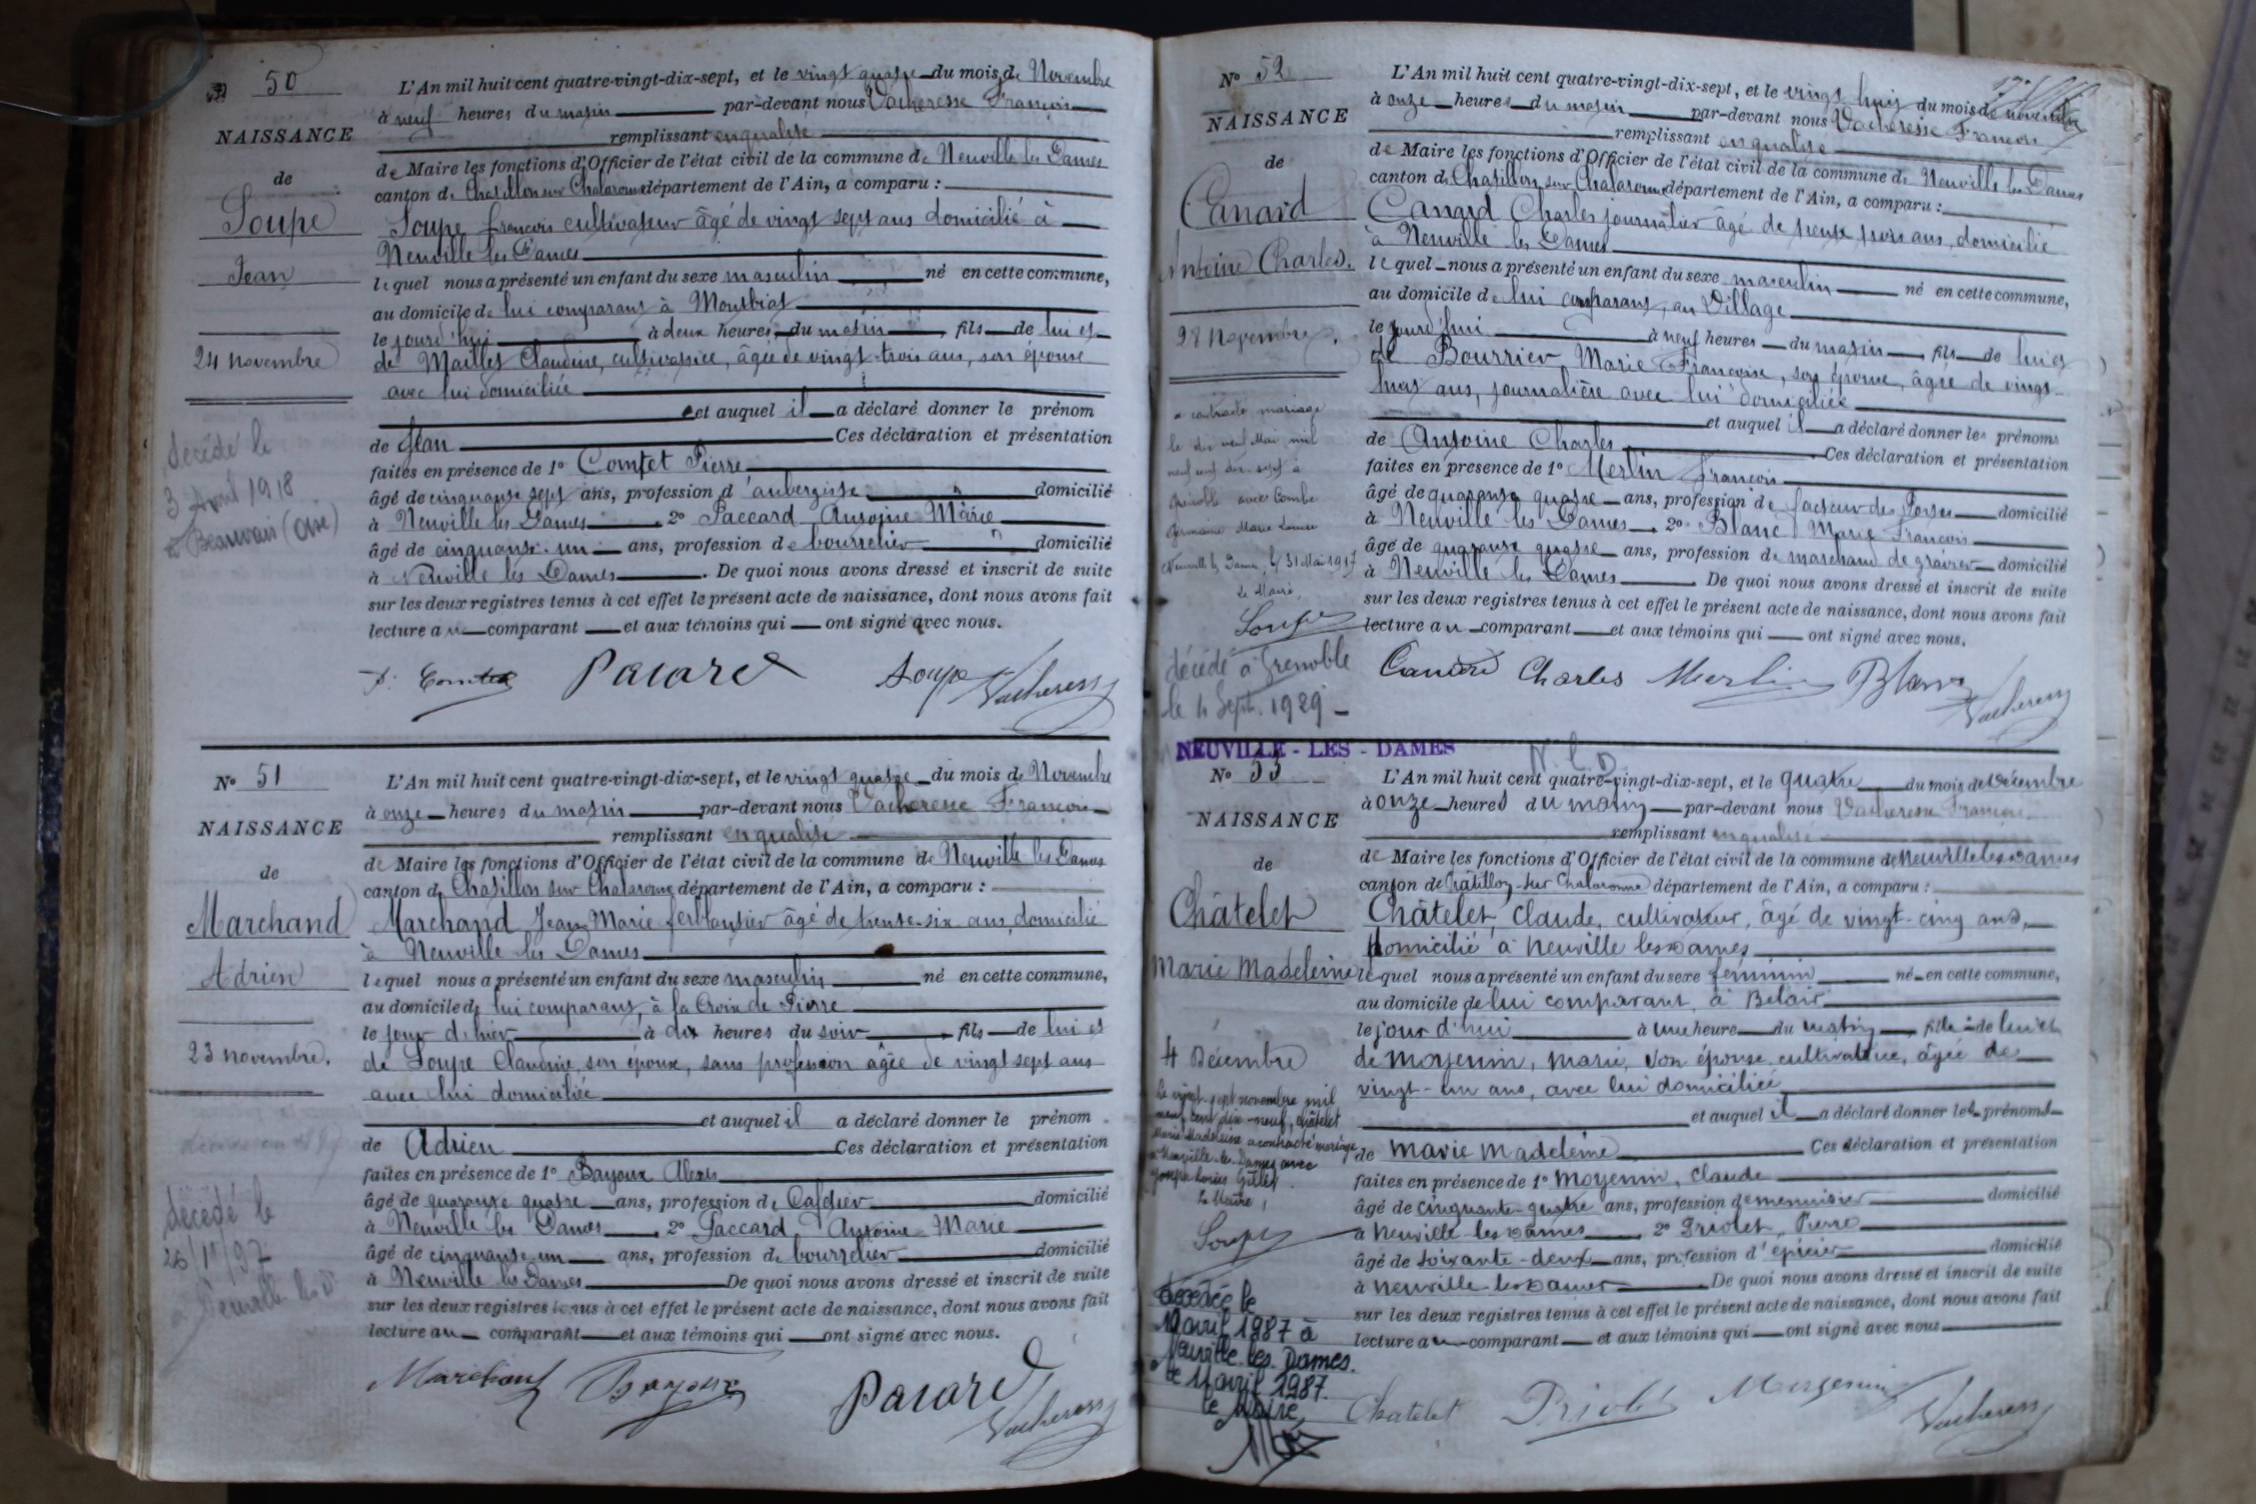 50
NAISSANCE
de
Soupe
Jean
24 novembre
décédé le
3 Avril 1918
à Beauvais (Oise)
L'An mil huit cent quatre-vingt-dix-sept, et le vingt quatre du mois de Novembre
à neuf heures du matin par-devant nous Vacheresse François
remplissant en qualité
de Maire les fonctions d'Officier de l'état civil de la commune de Neuville les Dames
canton de Chatillon sur Chalaronne département de l'Ain, a comparu :
Soupe françois cultivateur âgé de vingt sept ans domicilié à
Neuville les Dames
lequel nous a présenté un enfant du sexe masculin né en cette commune,
au domicile de lui comparant à Montbiat
le jourd'hui à deux heures du matin fils de lui et
de Maillet Claudine, cultivatrice, âgée de vingt-trois ans, son épouse
avec lui domiciliée
et auquel il a déclaré donner le prénom
de Jean Ces déclaration et présentation
faites en présence de 1° Comtet Pierre
âgé de cinquante sept ans, profession d'aubergiste domicilié
à Neuville les Dames 2° Paccard Antoine Marie
âgé de cinquante-un ans, profession de bourrelier domicilié
à Neuville les Dames. De quoi nous avons dressé et inscrit de suite
sur les deux registres tenus à cet effet le présent acte de naissance, dont nous avons fait
lecture au comparant et aux témoins qui ont signé avec nous.
Comtet Pacard Soupe Vacheresse
N° 51
NAISSANCE
de
Marchand
Adrien
23 novembre.
décédé le
26/11/97
à Neuville les D
L'An mil huit cent quatre-vingt-dix-sept, et le vingt quatre du mois de Novembre
à onze heures du matin par-devant nous Vacheresse François
remplissant en qualité
de Maire les fonctions d'Officier de l'état civil de la commune de Neuville les Dames
canton de Chatillon sur Chalaronne département de l'Ain, a comparu :
Marchand Jean Marie ferblantier âgé de trente-six ans, domicilié
à Neuville les Dames
lequel nous a présenté un enfant du sexe masculin né en cette commune,
au domicile de lui comparant, à la Croix de Pierre
le jour d'hier à dix heures du soir fils de lui et
de Soupe Claudine, son épouse, sans profession âgée de vingt sept ans
avec lui domiciliée
et auquel il a déclaré donner le prénom
de Adrien Ces déclaration et présentation
faites en présence de 1° Bayoux Alexis
âgé de quarante quatre ans, profession de Cafetier domicilié
à Neuville les Dames 2° Paccard Antoine Marie
âgé de cinquante un ans, profession de bourrelier domicilié
à Neuville les Dames De quoi nous avons dressé et inscrit de suite
sur les deux registres tenus à cet effet le présent acte de naissance, dont nous avons fait
lecture au comparant et aux témoins qui ont signé avec nous.
Marchand Bayoux Pacard Vacheresse
N° 52
NAISSANCE
de
Canard
Antoine Charles.
28 Novembre.
a contracté mariage
le dix neuf Mai mil
neuf cent dix sept à
Grenoble avec Combe
Germaine Marie Louise
Neuville les Dames, le 31 Mai 1917
le Maire,
Soupe
décédé à Grenoble
le 4 Sept. 1929
L'An mil huit cent quatre-vingt-dix-sept, et le vingt huit du mois de novembre
à onze heures du matin par-devant nous Vacheresse François
remplissant en qualité
de Maire les fonctions d'Officier de l'état civil de la commune de Neuville les Dames
canton de Chatillon sur Chalaronne département de l'Ain, a comparu :
Canard Charles journalier âgé de trente trois ans, domicilié
à Neuville les Dames
lequel nous a présenté un enfant du sexe masculin né en cette commune,
au domicile de lui comparant, au Village
le jourd'hui à neuf heures du matin fils de lui et
de Bourrier Marie Françoise, son épouse, âgée de vingt
huit ans, journalière avec lui domiciliée
et auquel il a déclaré donner les prénoms
de Antoine Charles Ces déclaration et présentation
faites en présence de 1° Merlin François
âgé de quarante quatre ans, profession de facteur des Postes domicilié
à Neuville les Dames 2° Blanc Marie François
âgé de quarante quatre ans, profession de marchand de gravier domicilié
à Neuville les Dames De quoi nous avons dressé et inscrit de suite
sur les deux registres tenus à cet effet le présent acte de naissance, dont nous avons fait
lecture au comparant et aux témoins qui ont signé avec nous.
Canard Charles Merlin Blanc Vacheresse
NEUVILLE - LES - DAMES N. L. D.
N° 53
NAISSANCE
de
Châtelet
Marie Madeleine
4 Décembre
Le vingt-sept novembre mil
neuf cent dix-neuf, Châtelet
Marie Madeleine a contracté mariage
à Neuville-les-Dames avec
Joseph Louis Gillet
Le Maire,
Soupe
Décédée le
10 avril 1987 à
Neuville les Dames.
Le 11 avril 1987.
le Maire,
L'An mil huit cent quatre-vingt-dix-sept, et le quatre du mois de Décembre
à onze heures du matin par-devant nous Vacheresse François
remplissant en qualité
de Maire les fonctions d'Officier de l'état civil de la commune de Neuville les Dames
canton de Châtillon-sur Chalaronne département de l'Ain, a comparu :
Châtelet, Claude, cultivateur, âgé de vingt-cinq ans,
domicilié à Neuville les Dames
lequel nous a présenté un enfant du sexe féminin né en cette commune,
au domicile de lui comparant, à Belair
le jour d'hui à une heure du matin, fille de lui et
de Moyenin, Marie, son épouse cultivatrice, âgée de
vingt-un ans, avec lui domiciliée
et auquel il a déclaré donner les prénoms
de Marie Madeleine Ces déclaration et présentation
faites en présence de 1° Moyenin, Claude
âgé de cinquante-quatre ans, profession de menuisier domicilié
à Neuville-les-Dames 2° Priolet, Pierre
âgé de soixante-deux ans, profession d'épicier domicilié
à Neuville-les-Dames De quoi nous avons dressé et inscrit de suite
sur les deux registres tenus à cet effet le présent acte de naissance, dont nous avons fait
lecture au comparant et aux témoins qui ont signé avec nous
Chatelet Priolet Moyenin Vacheresse